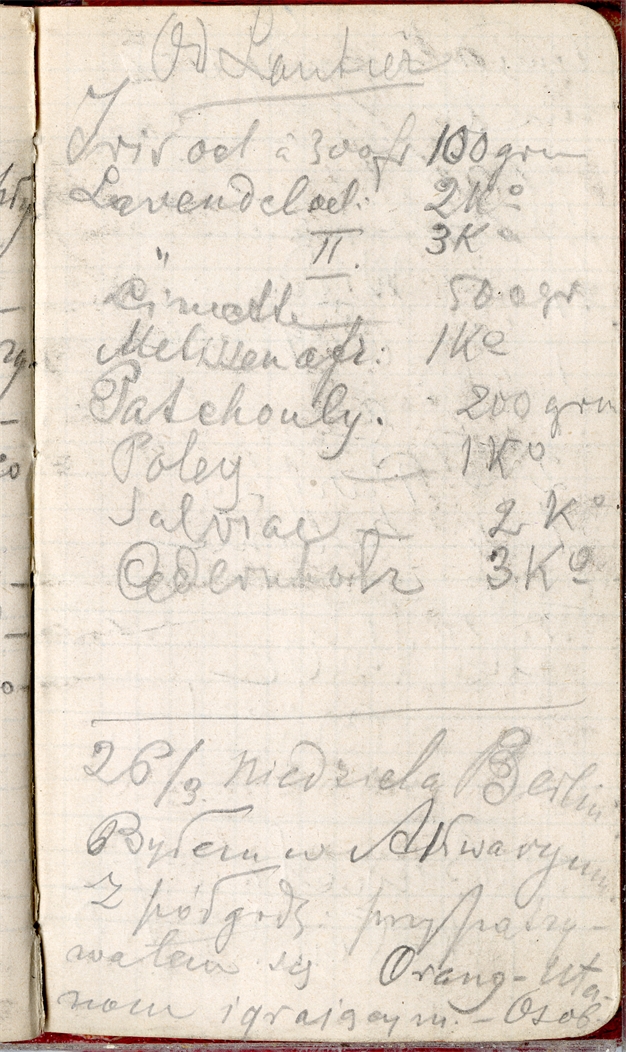 Od Lautier
Iris oel à 300 fr 100 grm
Lavendel oel: 2 Ko
" II. 3 K o
50 ogr.
Melissen 1 Ko
Patchouly. 200 grm
Poley — 1 Ko
Salviae — 2 Ko
Cedernholz 3 Ko
26/3 niedziela Berlin
Byłem w Akwaryum
Z pół godz. przypatry-
wałem się Orang-Uta
nom igrającym. - Osob